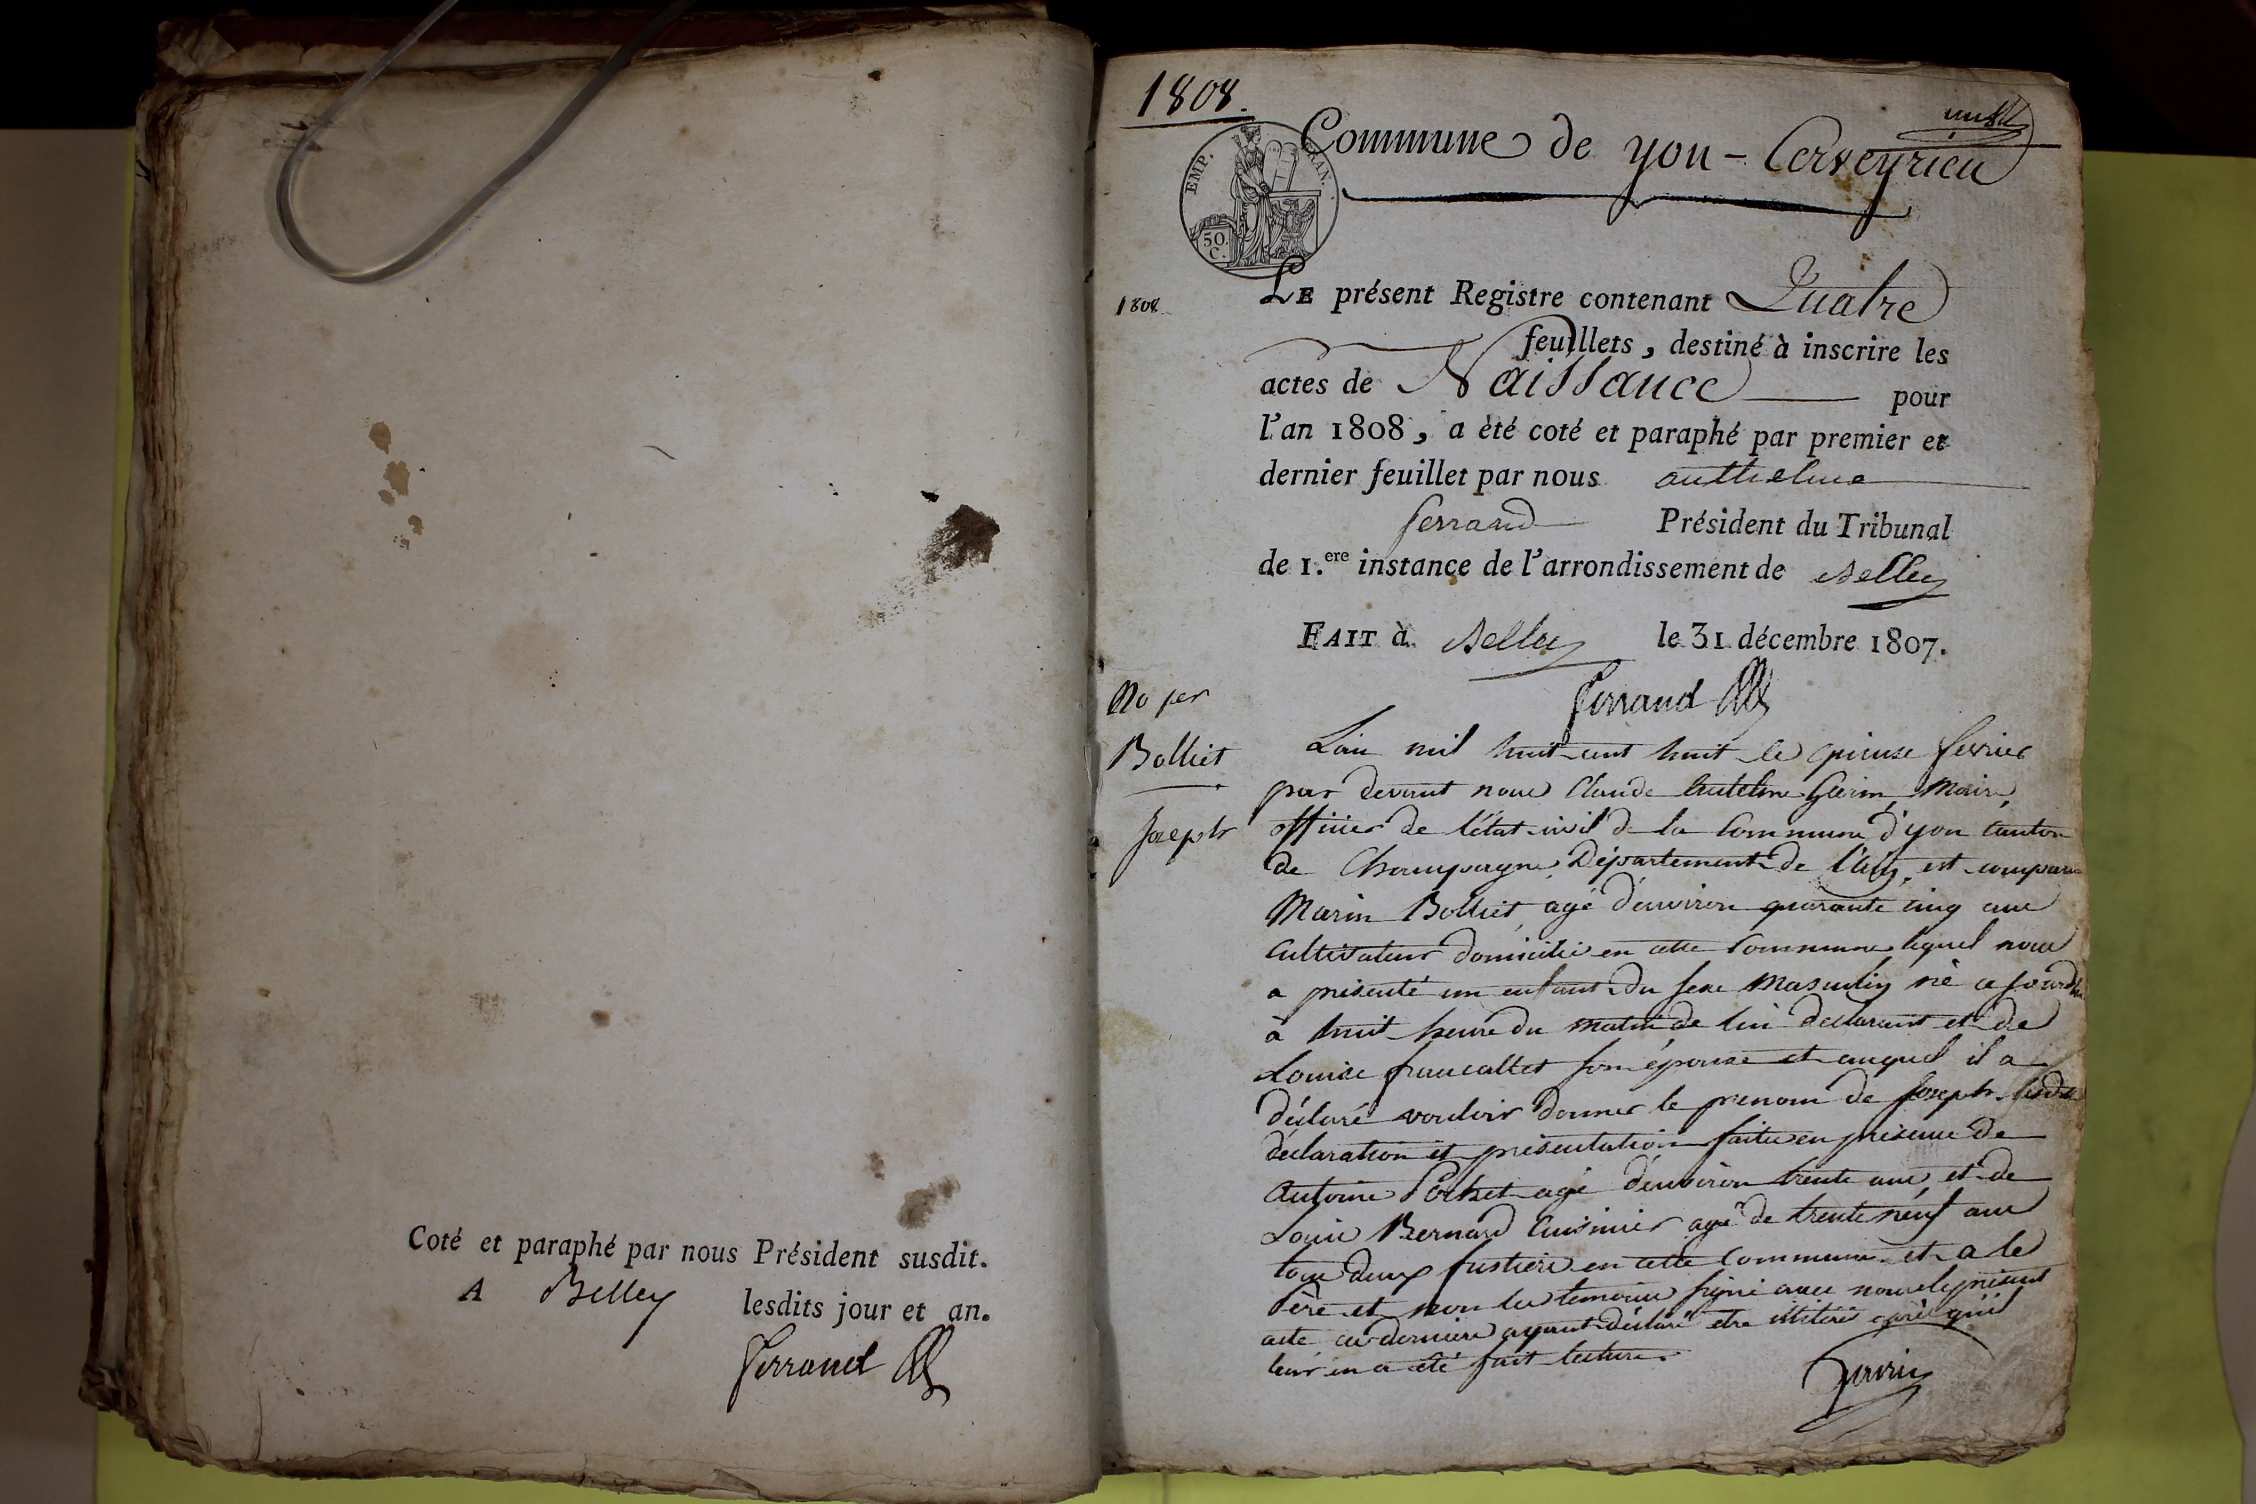 Coté et paraphé par nous Président susdit.
A Belley lesdits jour et an.
Ferrand
1808.
Commune de yon - Cerveyrieu
EMP. FRAN.
50. C.
1808
LE présent Registre contenant Quatre
feuillets, destiné à inscrire les
actes de Naissance pour
l'an 1808, a été coté et paraphé par premier et
dernier feuillet par nous anthelme
ferrand Président du Tribunal
de 1.ere instance de l'arrondissement de Belley
FAIT à Belley le 31 décembre 1807.
Ferrand
No 1er
Bolliet
Joseph
L'an mil huit cent huit le quinze fevrier
par devant nous Claude Antelme Garin, Maire,
officier de l'état civil de la Commune d'yon canton
de Champagne, Département de l'ain, est comparu
Marin Bolliet, agé d'environ quarante cinq ans
Cultivateur domicilié en cette Commune lequel nous
a présenté un enfant du sexe Masculin né ce jourdhui
à huit heure du matin de lui declarant et de
Louise francallet son épouse et auquel il a
déclaré vouloir donner le prenom de Joseph lesdites
déclaration et présentation faites en présence de
Antoine Pochet agé d'environ trente ans et de
Louis Bernard Cuisinier agé de trente neuf ans
tous deux en cette Commune et a le
Père et non les temoins signé avec nous le présent
acte ces derniers ayant déclaré etre illitérés après qu'il
leur en a été fait lecture.